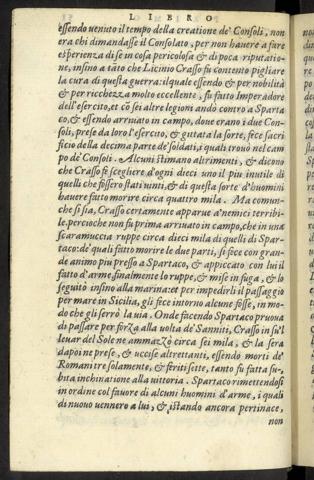 LIBRO
essendo venuto il tempo della creatione de' Consoli, non
era chi dimandasse il Consolato, per non hauere a fare
esperienza di se in cosa pericolosa & di poca riputatio-
ne, insino a tāto che Licinio Crasso fu contento pigliare
la cura di questa guerra: ilquale essendo & per nobilità
& per ricchezza molto eccellente, fu fatto Imperadore
dell'esercito, et cō sei altre legioni andò contro a Sparta
co, & essendo arriuato in campo, doue erano i due Con-
soli, prese da loro l'esercito, & gittata la sorte, fece sacri
ficio della decima parte de' soldati, i quali trouò nel cam
po de' Consoli. Alcuni stimano altrimenti, & dicono
che Crasso fe scegliere d'ogni dieci uno il piu inutile di
quelli che fossero stati uinti, & di questa sorte d'huomini
hauere fatto morire circa quattro mila. Ma comun-
che si sia, Crasso certamente apparue a' nemici terribi-
le. percioche non fu prima arriuato in campo, che in una
scaramuccia ruppe circa dieci mila di quelli di Spar-
taco: de' quali fatto morire le due parti, si fece con gran-
de animo piu presso a Spartaco, & appiccato con lui il
fatto d'arme, finalmente lo ruppe, & mise in fuga, & lo
seguitò insino alla marina: et per impedirli il passaggio
per mare in Sicilia, gli fece intorno alcune fosse, in mo-
do che gli serrò la uia. Onde facendo Spartaco pruoua
di passare per forza alla uolta de' Sanniti, Crasso in su'l
leuar del Sole ne ammazzò circa sei mila, & la sera
dapoi ne prese, & uccise altrettanti, essendo morti de'
Romani tre solamente, & feriti sette, tanto fu fatta su-
bita inchinatione alla uittoria. Spartaco rimettendosi
in ordine col fauore di alcuni huomini d'arme, i quali
di nuouo uennero a lui, & istando ancora pertinace,
non